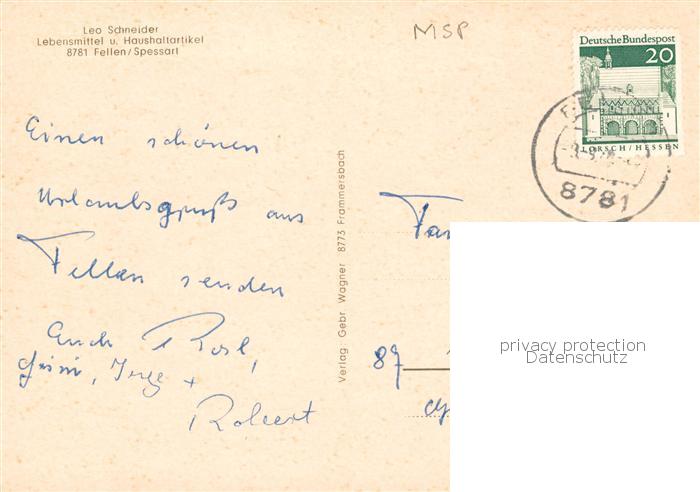 Leo Schneider
Lebensmittel u. Haushaltartikel
8781 Fellen/Spessart
MSP
Deutsche Bundespost
20
LORSCH/HESSEN
8781
Einen schönen
Urlaubsgruß aus
Fellen senden
Euch Rosl,
Inge +
Robert
Verlag: Gebr. Wagner 8773 Frammersbach
Fam
87
privacy protection
Datenschutz